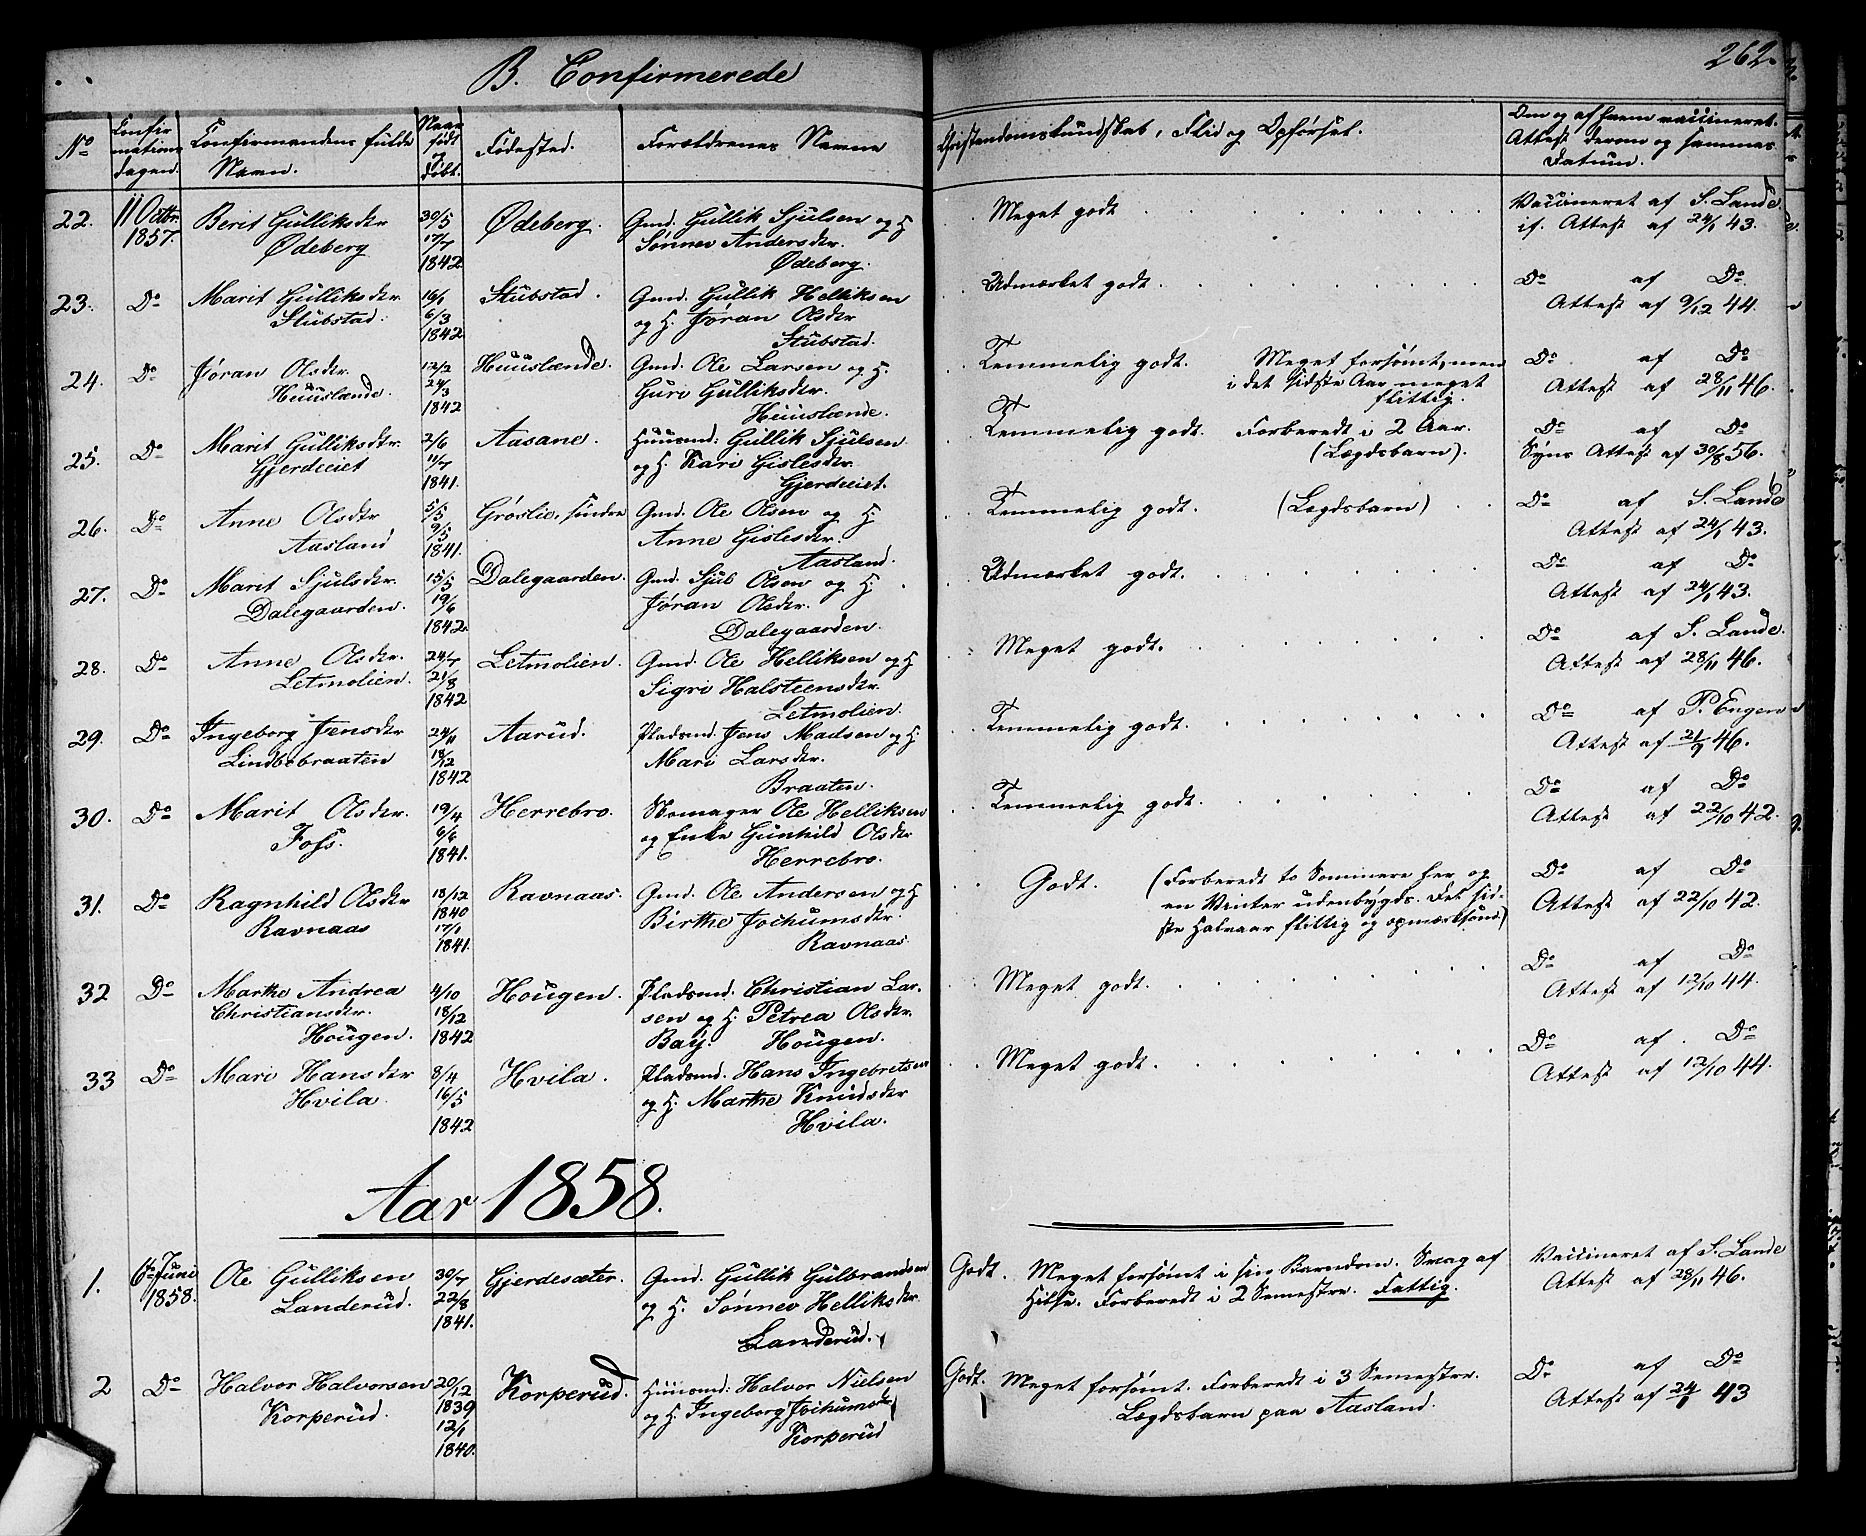 B. Confirmerede
262.
No
Confir
mations
dagen.
Confirmandens fulde
Navn.
Naar
født
og
døbt.
Fødested.
Forældrenes Navne
Christendomskundskab, Flid og Opførsel.
Om og af hvem vaccineret.
Attest derom og sammes
Datum.
22.
11 Octbr.
1857.
Berit Gulliksdtr
Ødeberg
30/5
17/7
1842.
Ødeberg.
Gmd. Gullik Sjulsen og H
Sønnev Andersdtr.
Ødeberg.
Meget godt
Vaccineret af S. Lande
if. Attest af 24/1 43.
23.
Do
Marit Gulliksdtr
Stubstad.
16/1
6/3
1842.
Stubstad.
Gmd. Gullik Helliksen
og H. Jøran Olsdtr
Stubstad.
Udmærket godt
Do af Do
Attest af 9/12 44.
24.
Do
Jøran Olsdtr.
Huuslænde.
12/2
24/3
1842
Huuslænde.
Gmd. Ole Larsen og H.
Guri Gulliksdtr.
Huuslænde.
Temmelig godt. Meget forsømt, men
i det sidste Aar meget
flittig.
Do af Do
Attest af 28/11 46.
25.
Do
Marit Gulliksdtr.
Gjerdeeiet
2/6
11/7
1841.
Aasane.
Huusmd: Gullik Sjulsen
og H. Kari Gislesdtr.
Gjerdeeiet.
Temmelig godt. Forberedt i 2 Aar.
(Lægdsbarn).
Do af Do
Syns Attest af 30/8 56.
26.
Do
Anne Olsdtr
Aasland
5/5
9/5
1841.
Grøslie, søndre
Gmd. Ole Olsen og H
Anne Gislesdtr.
Aasland.
Temmelig godt. (Lægdsbarn)
Do af S. Lande
Attest af 24/1 43.
27.
Do
Marit Sjulsdtr.
Dalegaarden.
15/5
19/6
1842.
Dalegaarden.
Gmd. Sjul Olsen og H.
Jøran Olsdtr.
Dalegaarden.
Udmærket godt.
Do af Do
Attest af 24/1 43.
28.
Do
Anne Olsdtr.
Letmolien.
24/7
21/8
1842
Letmolien.
Gmd. Ole Helliksen og H
Sigri Halsteensdtr.
Letmolien.
Meget godt.
Do af S. Lande.
Attest af 28/11 46.
29.
Do
Ingeborg Jensdtr
Lindbobraaten
24/11
18/12
1842
Aarud.
Pladsmd. Jens Madsen og H.
Mari Larsdtr.
Braaten.
Temmelig godt.
Do af P. Engen
Attest af 21/7 46.
30.
Do
Marit Olsdtr.
Foss.
19/4
6/6
1841.
Herrebro.
Skomager Ole Helliksen
og Enke Gunhild Olsdtr
Herrebro.
Temmelig godt.
Do af Do
Attest af 22/10 42.
31.
Do
Ragnhild Olsdtr
Ravnaas
18/12
1840
17/1
1841.
Ravnaas.
Gmd. Ole Andersen og H
Birthe Jochumsdtr.
Ravnaas.
Godt. (Forberedt to Sommere her og
en Vinter udenbygds. Det sid-
ste Halvaar flittig og opmærksom.)
Do af Do
Attest af 22/10 42.
32
Do
Marthe Andrea
Christiansdtr.
Hougen.
4/10
18/12
1842
Hougen.
Pladsmd. Christian Lar-
sen og H. Petrea Olsdtr.
Baÿ. Hougen.
Meget godt.
Do af Do
Attest af 12/10 44.
33
Do
Mari Hansdtr
Hvila.
8/4
16/5
1842
Hvila.
Pladsmd. Hans Ingebretsen
og H. Marthe Knudsdtr
Hvila.
Meget godt.
Do af Do
Attest af 12/10 44.
Aar 1858.
1.
6te Juni
1858.
Ole Gulliksen
Landerud.
30/7
22/8
1841.
Gjerdesæter.
Gmd. Gullik Gulbrandsen
og H. Sønnev Helliksdtr.
Landerud.
Godt. Meget forsømt i sin Barndom. Svag af
Hilse. Forberedt i 2 Semestre. Fattig.
Vaccineret af S. Lande
Attest af 28/11 46.
2
Do
Halvor Halvorsen
Korperud.
20/12
1839
12/1
1840.
Korperud.
Huusmd: Halvor Nielsen
og H. Ingeborg Jochumsdtr
Korperud
Godt. Meget forsømt. Forberedt i 3 Semestre.
Lægdsbarn paa Aasland.
Do af Do
Attest af 24/1 43